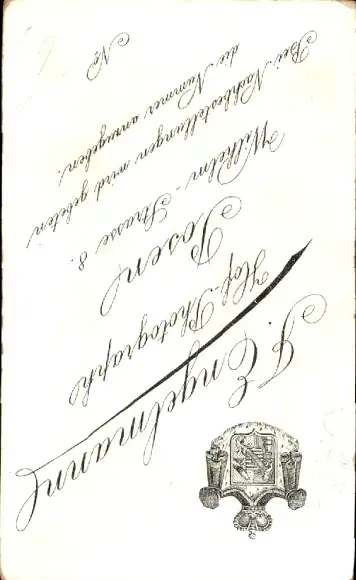 F. Engelmann
Hof-Photograph
Posen
Wilhelm-Strasse 8.
Bei Nachbestellungen wird gebeten
die Nummer anzugeben.
No.